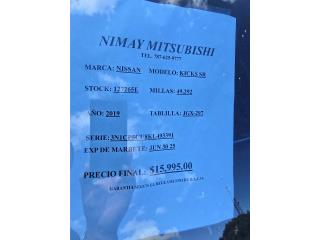 NIMAY MITSUBISHI
TEL. 787-622-0777
MARCA: NISSAN MODELO: KICKS SR
STOCK: 127265E MILLAS: 49,292
AÑO: 2019 TABLILLA: JGX-207
SERIE: 3N1CP5CU8KL493391
EXP DE MARBETE: JUN 30 25
PRECIO FINAL: $15,995.00
GARANTIA SEGUN EL REGLAMENTO